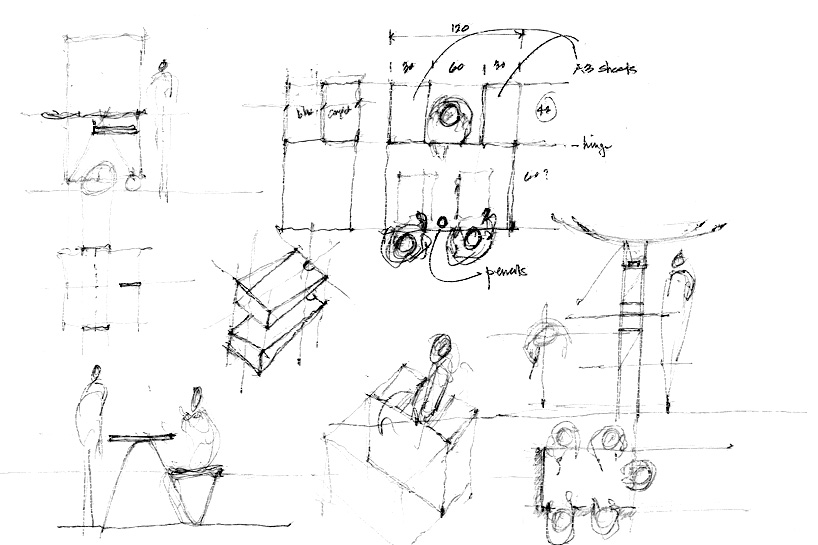 120
30 60 30
A3 sheets
44
hinge
60?
pencils